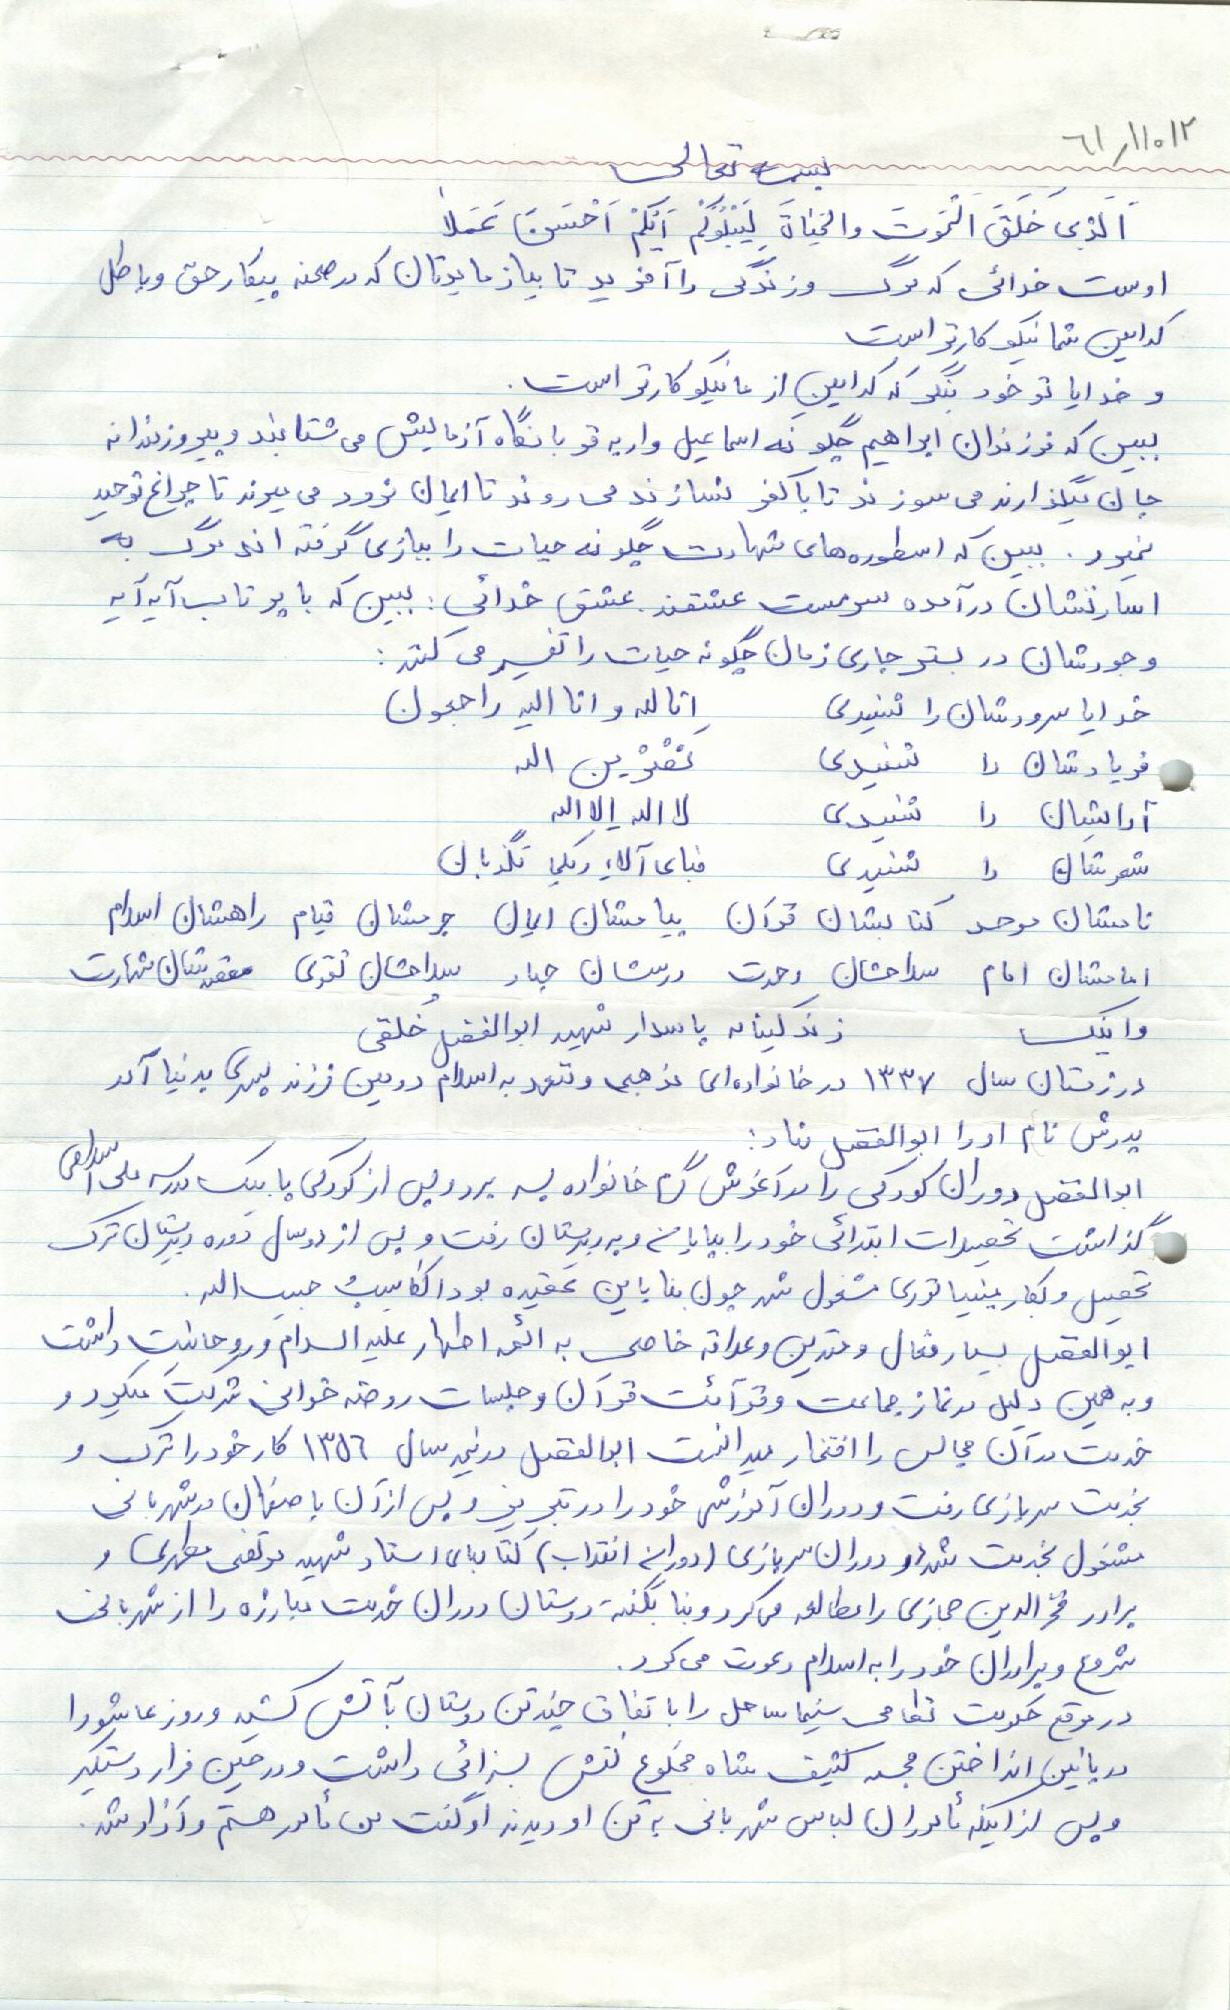 ۶۱٫۱۱۰۱۲
بسمه تعالی
اَلَّذی خَلَقَ اَلْمَوتَ والحَیاةَ لِیَبْلُوَکُمْ اَیُّکُمْ اَحْسَنُ عَمَلاً
اوست خدائی که مرگ وزندگی را آفرید تا بیازمایدتان که در صحنه پیکار حق و باطل
کدامین شما نیکو کارتر است
و خدایا تو خود بنگر که کدامین از ما نیکو کارتر است.
ببین که فرزندان ابراهیم چگونه اسماعیل وار به قربانگاه آزمایش می شتابند و پیروزمندانه
جان میگذارند می سوزند تا با کفر نسازند می روند تا ایمان نرود می میرند تا چراغ توحید
نمیرد. ببین که اسطوره های شهادت چگونه حیات را ببازی گرفته اند مرگ به
اسارتشان درآمده سرمست عشقند. عشق خدائی: ببین که با پرتاب آیه آیه
وجودشان در بستر جاری زمان چگونه حیات را تفسیر می کنند:
خدایا سرودشان را شنیدی اِنا لله و انا الیه راجعون
فریادشان را شنیدی الله
آوایشان را شنیدی لا اله الا الله
شعرشان را شنیدی فبای آلاءِ ربکما تکذبان
نامشان موحد کتابشان قرآن پیامشان ایمان جرمشان قیام راهشان اسلام
امامشان امام سلاحشان وحدت درسشان جهاد سلاحشان تقوی مقصدشان شهادت
و اینک زندگینامه پاسدار شهید ابوالفضل خُلقی
در زمستان سال ۱۳۳۷ در خانواده ای مذهبی و متعهد به اسلام دومین فرزند پسری بدنیا آمد
پدرش نام او را ابوالفضل نهاد:
ابوالفضل دوران کودکی را در آغوش گرم خانواده بسر برد و پس از کودکی پا بیک مدرسه ملی اسلامی
گذاشت تحصیلات ابتدائی خود را بپایان و به دبیرستان رفت و پس از دو سال دوره دبیرستان ترک
تحصیل و بکار مینیاتوری مشغول شد چون بنا باین عقیده بود الکاسبُ حبیب الله.
ابوالفضل بسیار فعال و متدین و علاقه خاصی به ائمه اطهار علیه السلام و روحانیت داشت
و به همین دلیل در نماز جماعت و قرآئت قرآن و جلسات روضه خوانی شرکت میکرد و
خدمت در آن مجالس را افتخار میدانست ابوالفضل در تیر سال ۱۳۵۶ کار خود را ترک و
بخدمت سربازی رفت و دوران آموزشی خود را در و پس از آن باصفهان در شهربانی
مشغول بخدمت شد و دوران سربازی (دوران انقلاب) کتابهای استاد شهید مرتضی مطهری و
برادر فخرالدین حجازی را مطالعه می کرد و بنا بگفته دوستان دوران خدمت مبارزه را از شهربانی
شروع و برادران خود را به اسلام دعوت می کرد.
در موقع حکومت نظامی سینما ساحل را با تفاق چند تن دوستان بآتش کشید و روز عاشورا
در پائین انداختن مجسمه کثیف شاه مخلوع نقش بسزائی داشت و در حین فرار دستگیر
و پس از اینکه مأموران لباس شهربانی به تن او دیدند او گفت من مأمور هستم و آزاد شد.